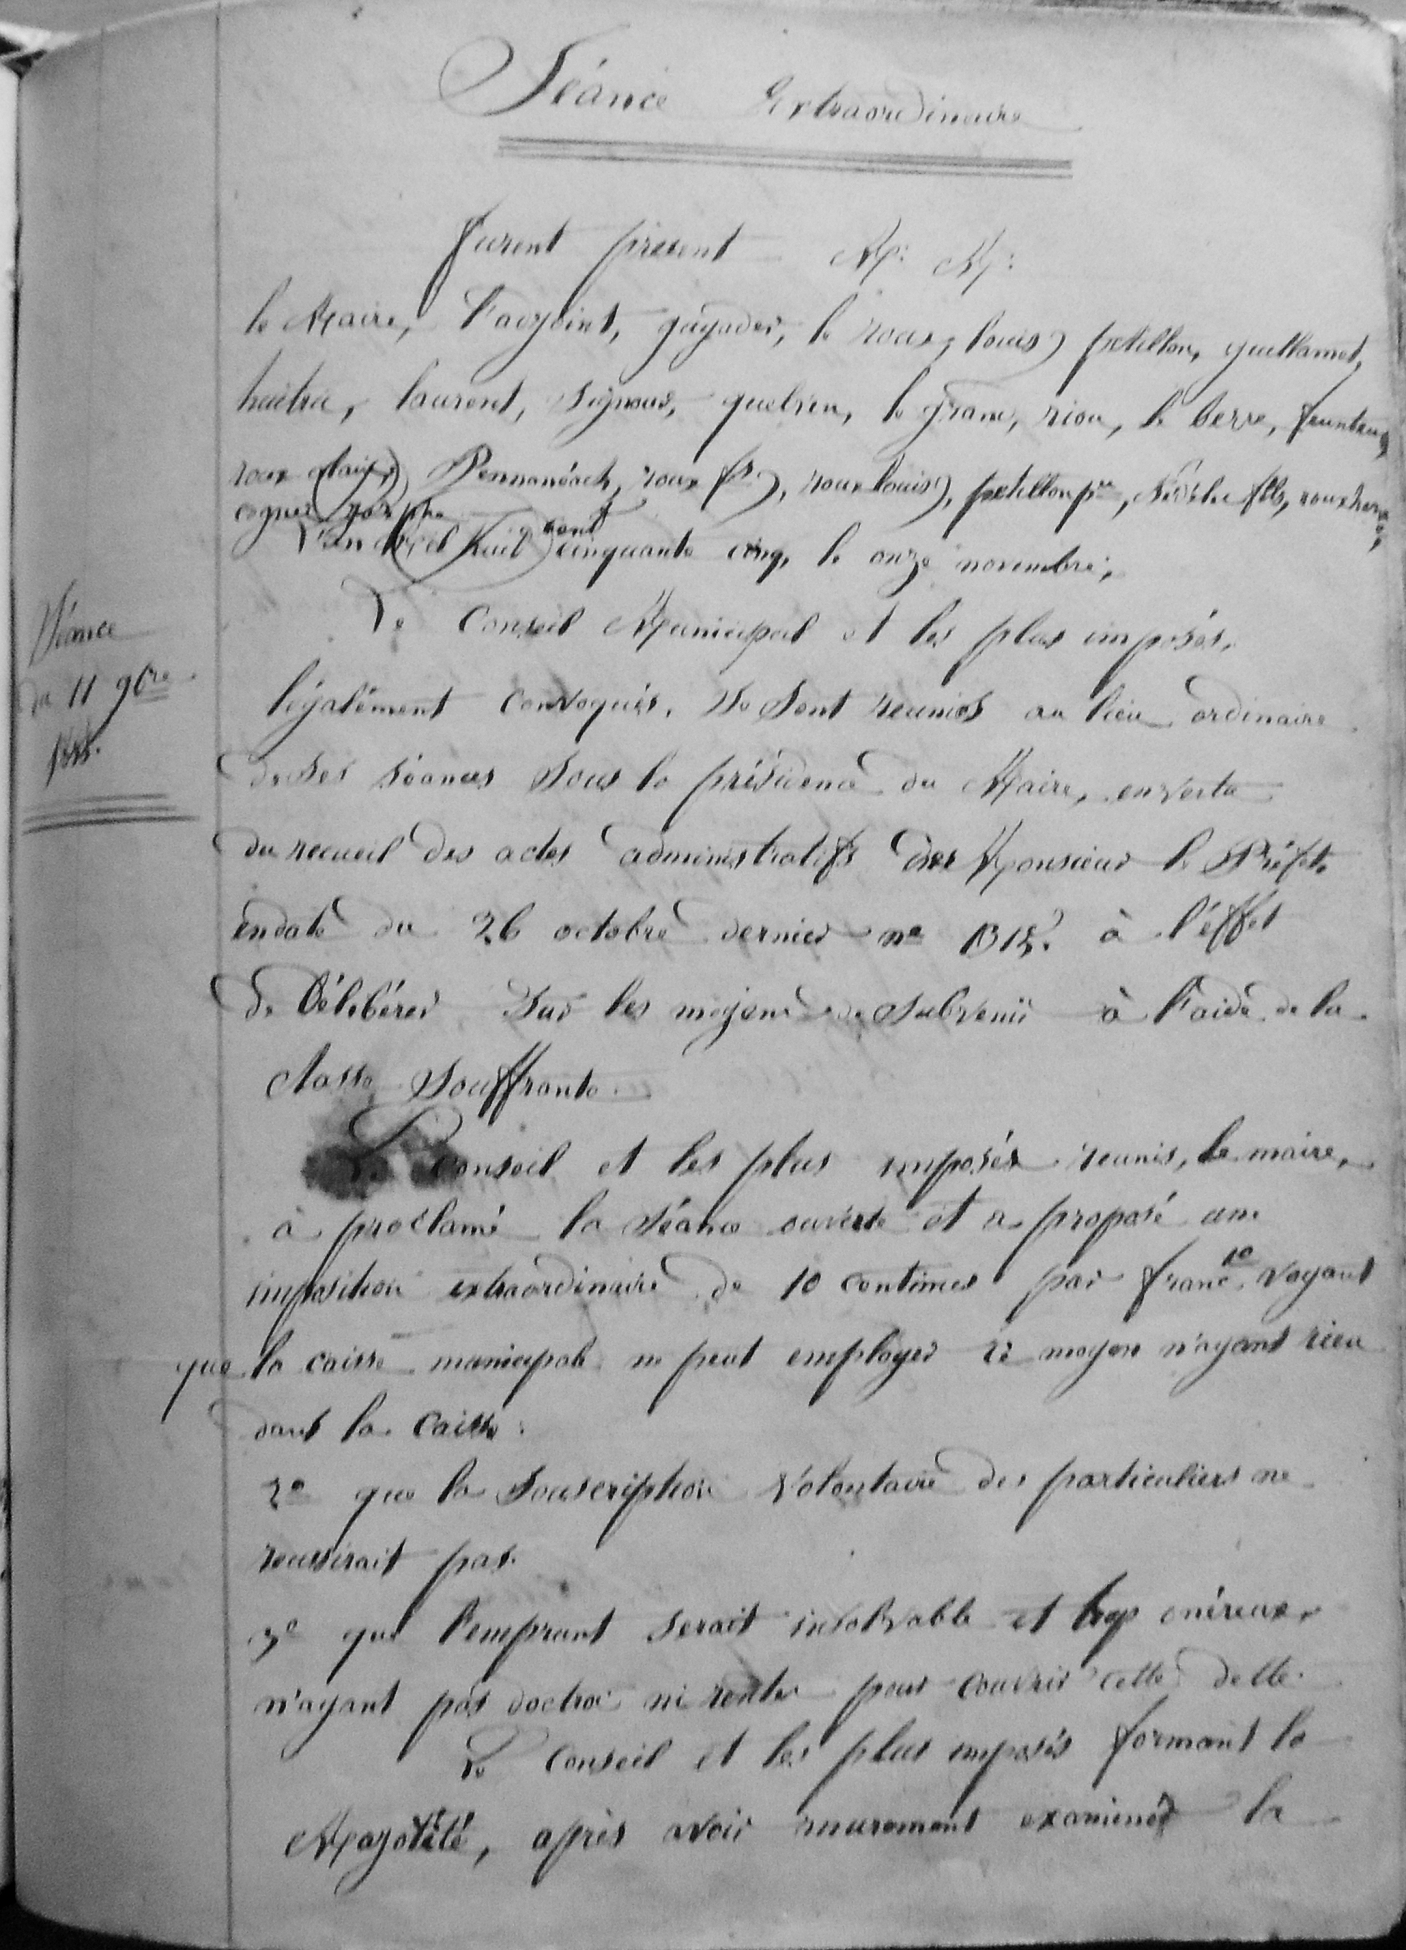 Séance Extraordinaire
furent présent M. M.
le Maire, l'adjoint, guyader, le roux louis) petillon, guillamet,
laurent, Signour, quelven, le grand, riou, le berre,
roux Pennanéach, roux fs), roux louis), petillon pre, fils,
L'an mil huit cent cinquante cinq, le onze novembre,
Le Conseil Municipal et les plus imposés,
Séance
du 11 9bre
1855.
légalément convoqués, Se Sont reunies au lieu ordinaire
de Ses séances Sous la présidence du Maire, en vertu
du recueil des actes administratifs de Monsieur le Préfet,
en date du 26 octobre dernier no à l'éffet
de Délibérer Sur les moyens de Subvenir à l'aide de la
classe Souffrante.
Le Conseil et les plus imposés reunis, le maire,
à proclamé la Séance ouverte et a proposé une
imposition extraordinaire de 10 centimes par franc. 1o Voyant
que la caisse municipale ne peut employer ce moyen n'ayant rien
dans la Caisse.
2o que la Souscription Volontaire des particuliers ne
reussirait pas.
3o que l'emprunt serait insolvable et trop onéreux,
n'ayant pas doctroi ni rentes pour couvrir cette dette.
Le Conseil et les plus imposés formant la
Majorité, après avoir murement examiné la